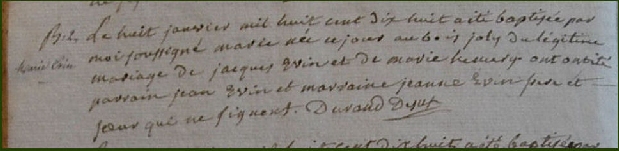 B. 2. Le huit janvier mil huit cent dix huit a été baptisée par
moi soussigné marie née ce jour au bois joly du légitime
mariage de jacques Evin et de marie hemery ont été
parrain jean Evin et marraine jeanne Evin frere et
sœur qui ne signent. Durand Desser
marie Evin
cent dix huit a été baptisée par